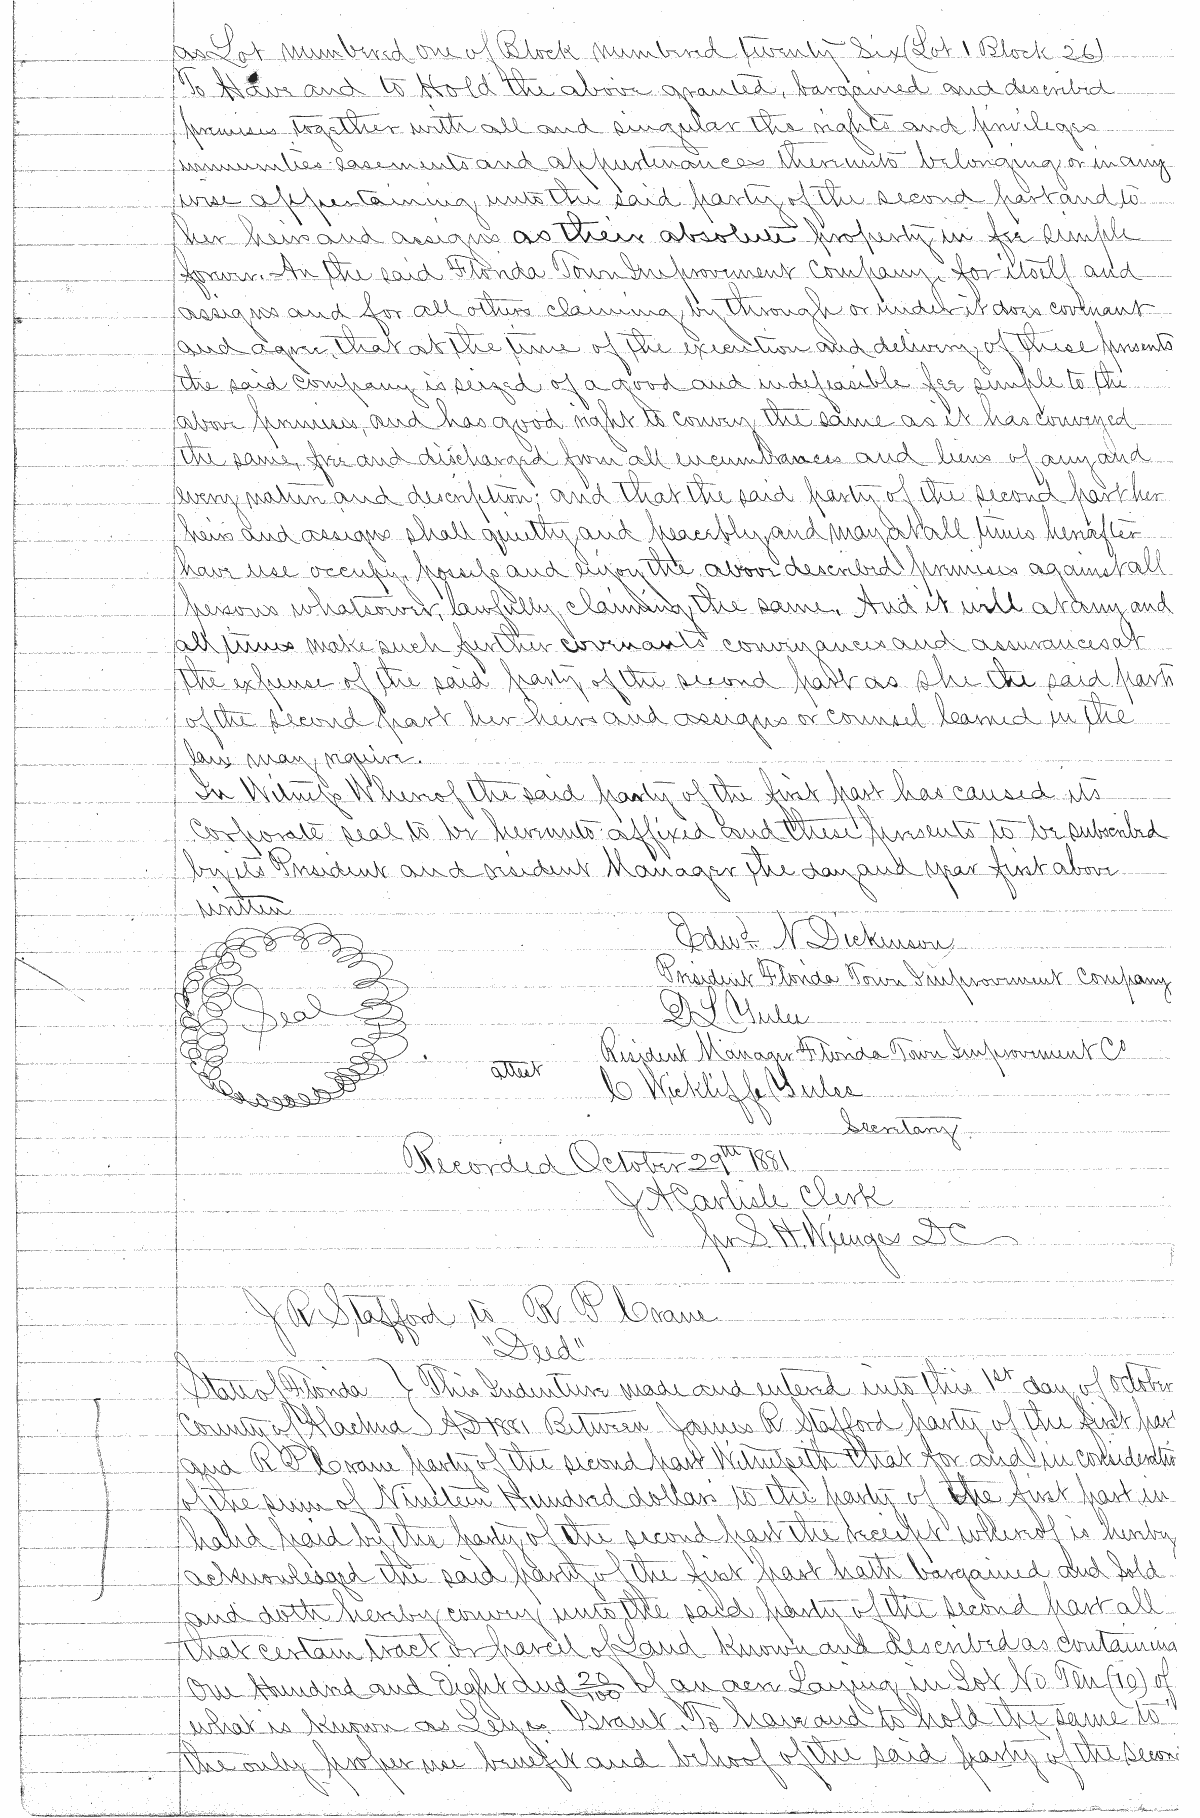 as Lot numbered one of Block numbered twenty Six (Lot 1 Block 26)
To Have and to Hold the above granted, bargained and described
premises together with all and singular the rights and privileges
immunities easements and appurtenances thereunto belonging or in any
wise appertaining unto the said party of the second part and to
her heirs and assigns as their absolute property in fee simple
forever. An the said Florida Town Improvement Company, for itself and
assigns and for all others claiming by through or under it does covenant
and agree, that at the time of the execution and delivery of these presents
the said company is seized of a good and indefeasible fee simple to the
above premises, and has good right to convey the same as it has conveyed
the same, free and discharged from all encumbrances and liens of any and
every nature and description; and that the said party of the second part her
heirs and assigns shall quietly and peacebly and may at all times hereafter
have use occupy, possess and enjoy the above described premises against all
persons whatsoever, lawfully claiming the same. And it will at any and
all times make such further covenants conveyances and assurances at
the expense of the said party of the second part as she the said party
of the second part her heirs and assigns or counsel learned in the
law may require.
In Witness Whereof the said party of the first part has caused its
corporate seal to be hereunto affixed and these presents to be subscribed
by its President and resident Manager, the day and year first above
written
Seal
Edwd N. Dickinson
President Florida Town Improvement Company
D L Yulee
Resident Manager Florida Town Improvement Co
attest C Wickliffe Yulee
Secretary.
Recorded October 29th 1881
J A Carlisle Clerk
per S. H. Wienges DC
J R Stafford to R P Crane
"Deed"
State of Florida } This Indenture made and entered into this 1st day of October
County of Alachua } AD 1881 Between James R Stafford party of the first part
and R P Crane party of the second part Witnesseth that for and in consideration
of the sum of Nineteen Hundred dollars to the party of the first part in
hand paid by the party of the second part the receipt whereof is hereby
acknowledged the said party of the first part hath bargained and sold
and doth hereby convey unto the said party of the second part all
that certain tract or parcel of Land known and described as containing
One Hundred and Eight and 20/100 of an acre Laying in Lot No Ten (10) of
what is known as Grant. To have and to hold the same to
the only proper use benefit and behoof of the said party of the second